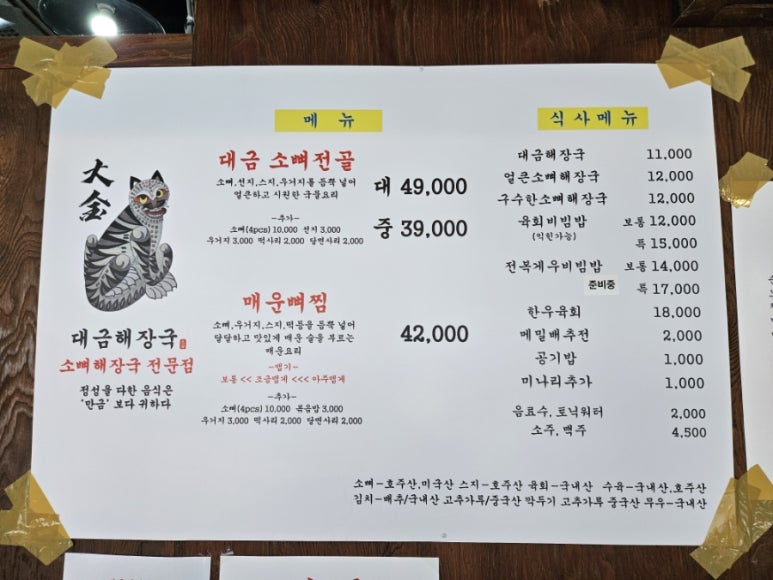 大金
대금해장국
소뼈해장국 전문점
정성을 다한 음식은
'만금' 보다 귀하다
메 뉴
대금 소뼈전골
소뼈,선지,스지,우거지를 듬뿍 넣어
얼큰하고 시원한 국물요리
대 49,000
중 39,000
-추가-
소뼈(4pcs) 10,000 선지 3,000
우거지 3,000 떡사리 2,000 당면사리 2,000
매운뼈찜
소뼈,우거지,스지,떡등을 듬뿍 넣어
달달하고 맛있게 매운 술을 부르는
매운요리
42,000
-맵기-
보통 << 조금맵게 <<< 아주맵게
-추가-
소뼈(4pcs) 10,000 볶음밥 3,000
우거지 3,000 떡사리 2,000 당면사리 2,000
식 사 메 뉴
대금해장국 11,000
얼큰소뼈해장국 12,000
구수한소뼈해장국 12,000
육회비빔밥 보통 12,000
(익힘가능) 특 15,000
전복게우비빔밥 보통 14,000
준비중 특 17,000
한우육회 18,000
메밀배추전 2,000
공기밥 1,000
미나리추가 1,000
음료수, 토닉워터 2,000
소주, 맥주 4,500
소뼈-호주산,미국산 스지-호주산 육회-국내산 수육-국내산,호주산
김치-배추/국내산 고추가루/중국산 깍두기 고추가루 중국산 무우-국내산